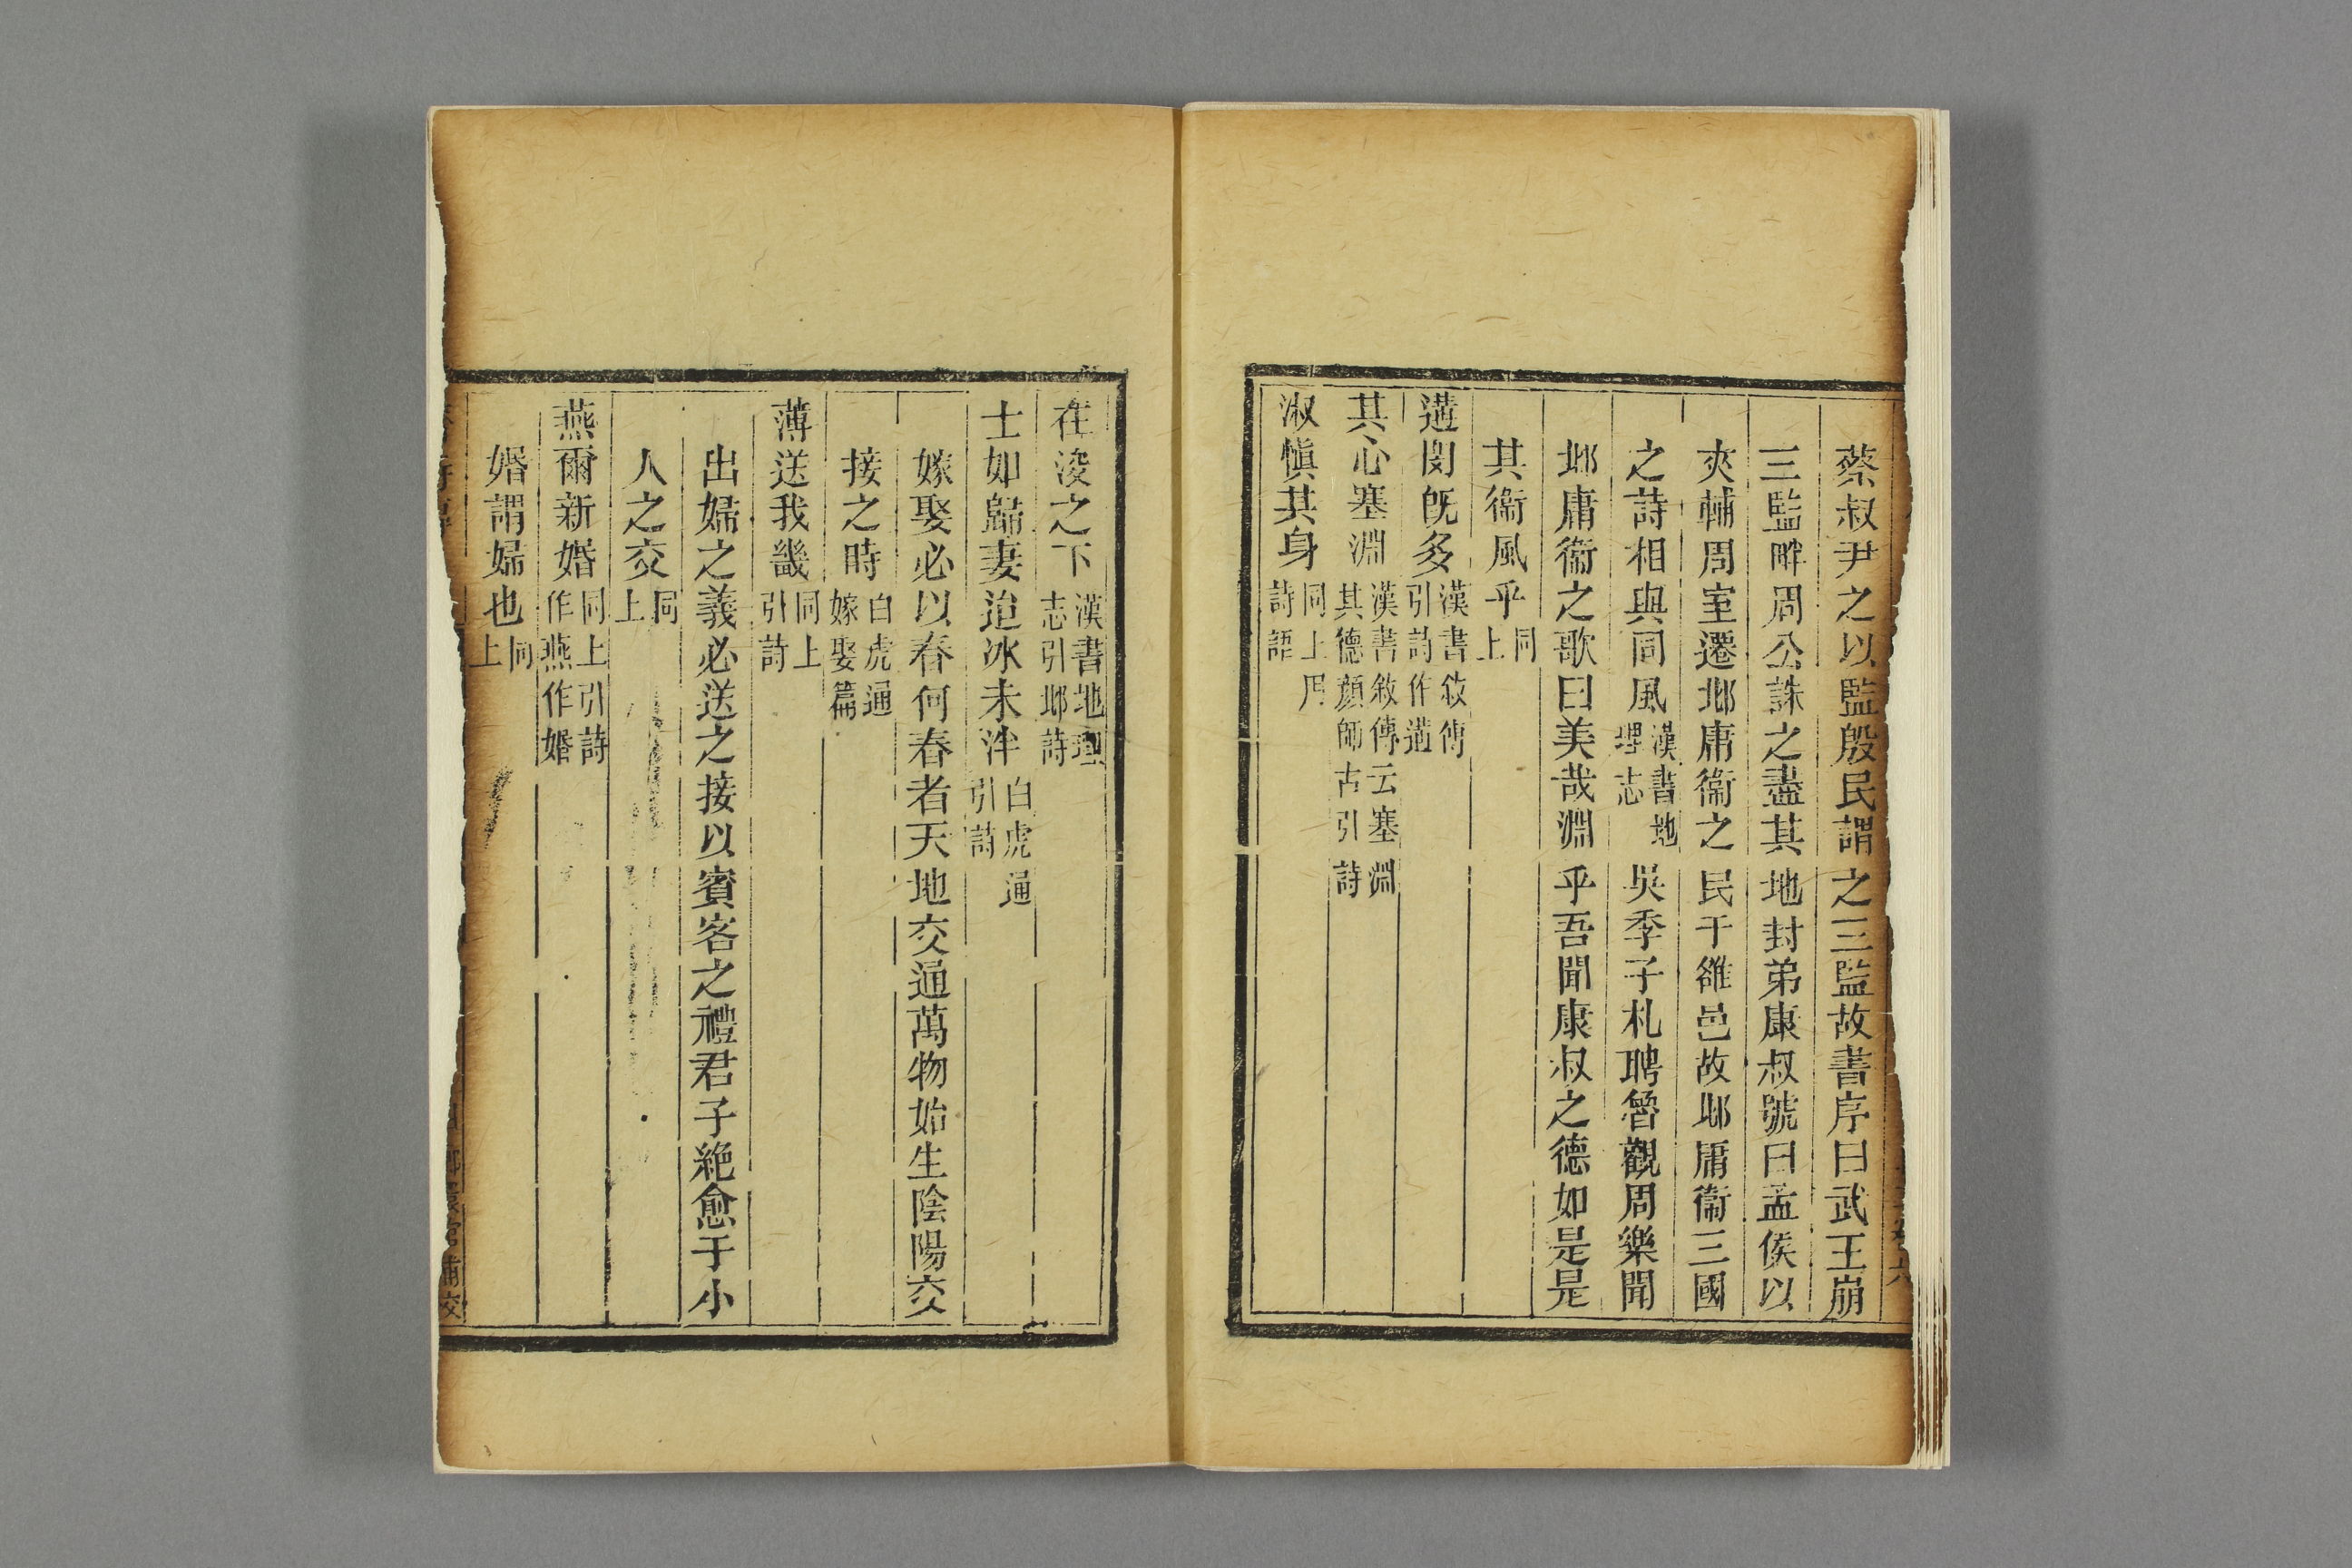 蔡叔尹之以監殷民謂之三監故書序曰武王崩
三監畔周公誅之盡其地封弟康叔號曰孟侯以
夾輔周室遷邶庸衞之民于雒邑故邶庸衞三國
之詩相與同風漢書地理志吳季子札聘魯觀周樂聞
邶庸衞之歌曰美哉淵乎吾聞康叔之德如是是
其衞風乎同上
遘閔旣多漢書敘傳引詩作遘
其心塞淵漢書敘傳云塞淵其德顏師古引詩
淑愼其身同上用詩語
在浚之下漢書地理志引邶詩
士如歸妻迨冰未泮白虎通引詩
嫁娶必以春何春者天地交通萬物始生陰陽交
接之時白虎通嫁娶篇
薄送我畿同上引詩
出婦之義必送之接以賓客之禮君子絕愈于小
人之交同上
燕爾新婚同上引詩作燕作婚
婚謂婦也同上